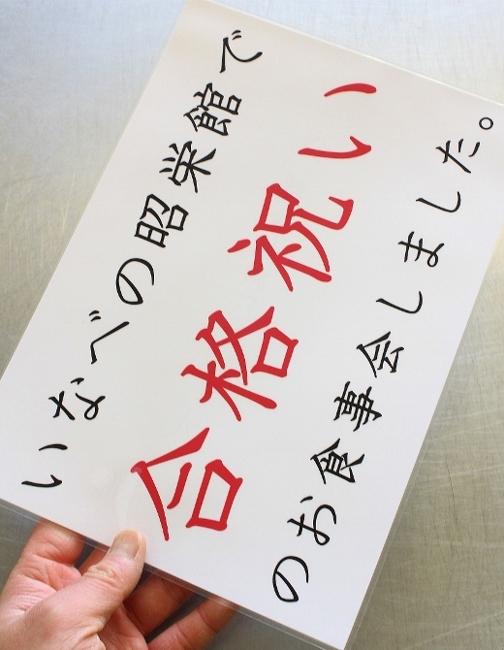 いなべの昭栄館で
合格祝い
のお食事会しました。